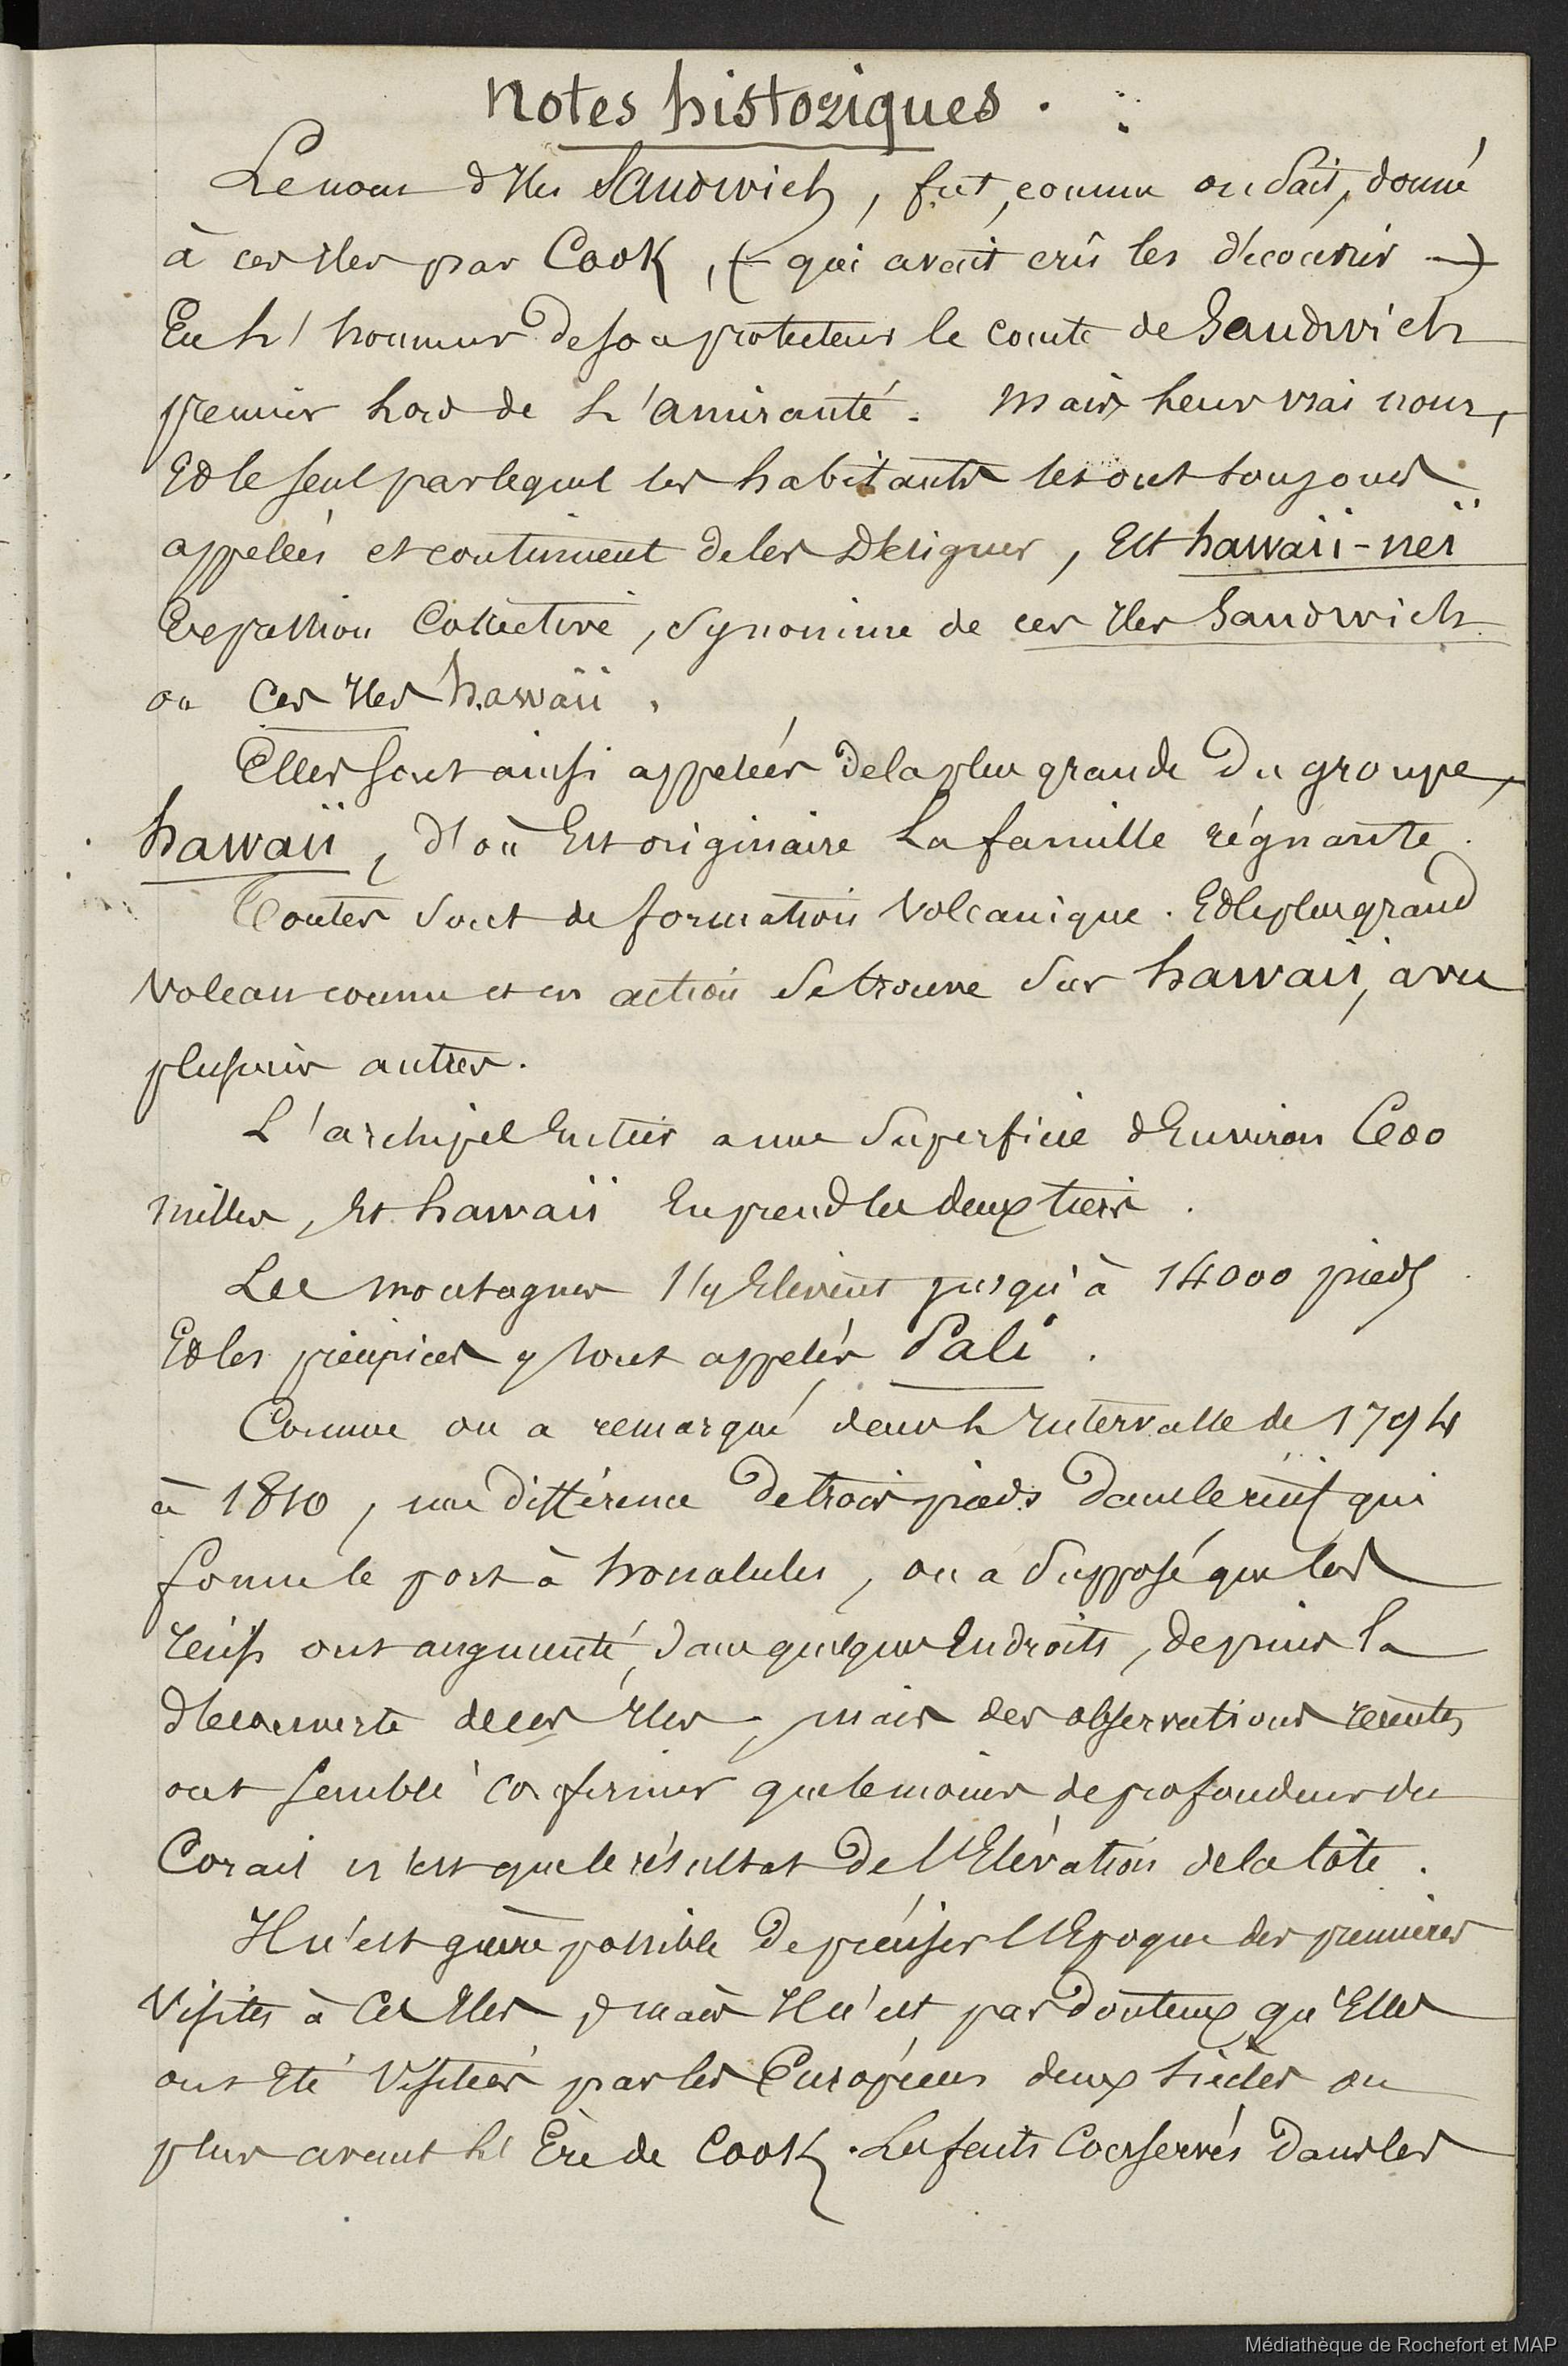 Notes historiques.
Le nom d'Iles Sandwich, fut, comme on Sait, donné
à ces Iles par Cook, (qui avait crû les découvrir —)
En L'honneur de son protecteur le comte de Sandwich
premier Lord de L'amirauté. Mais Leur vrai nom,
Et le seul par lequel les habitants les ont toujours
appelées et continuent de les Désigner, Est hawaii-neï
Expression Collective, Synonime de ces Iles Sandwich
ou Ces Iles hawaïi.
Elles sont ainsi appelées de la plus grande Du groupe,
hawaïi, d'où Est originaire La famille régnante.
Toutes Sont de formation Volcanique. Et le plus grand
Volcan connu et en action Se trouve Sur hawaii, avec
plusieurs autres.
L'archipel Entier a une Superficie d'Environ
milles, Et hawaïi En prend les deux tiers.
Les montagnes s'y Elèvent jusqu'à 14000 pieds
Et les précipices y sont appelés Pali.
Comme on a remarqué dans L'Intervalle de 1794
à 1810, une Différence De trois pieds Dans le récif qui
forme le port à honolulu, on a Supposé que les
récifs ont augmenté, dans quelques Endroits, depuis la
découverte de ces Iles, mais des observations récentes
ont semblé confirmer que le moins de profondeur du
Corail n'est que le résultat De l'Elévation de la Côte.
Il n'est guère possible De préciser l'Epoque des premières
Visites à Ces Iles, mais Il n'est pas Douteux qu'Elles
ont Eté Visitées par les Européens deux siècles ou
plus avant L'Ere de Cook. Les faits Conservés Dans les
Médiathèque de Rochefort et MAP